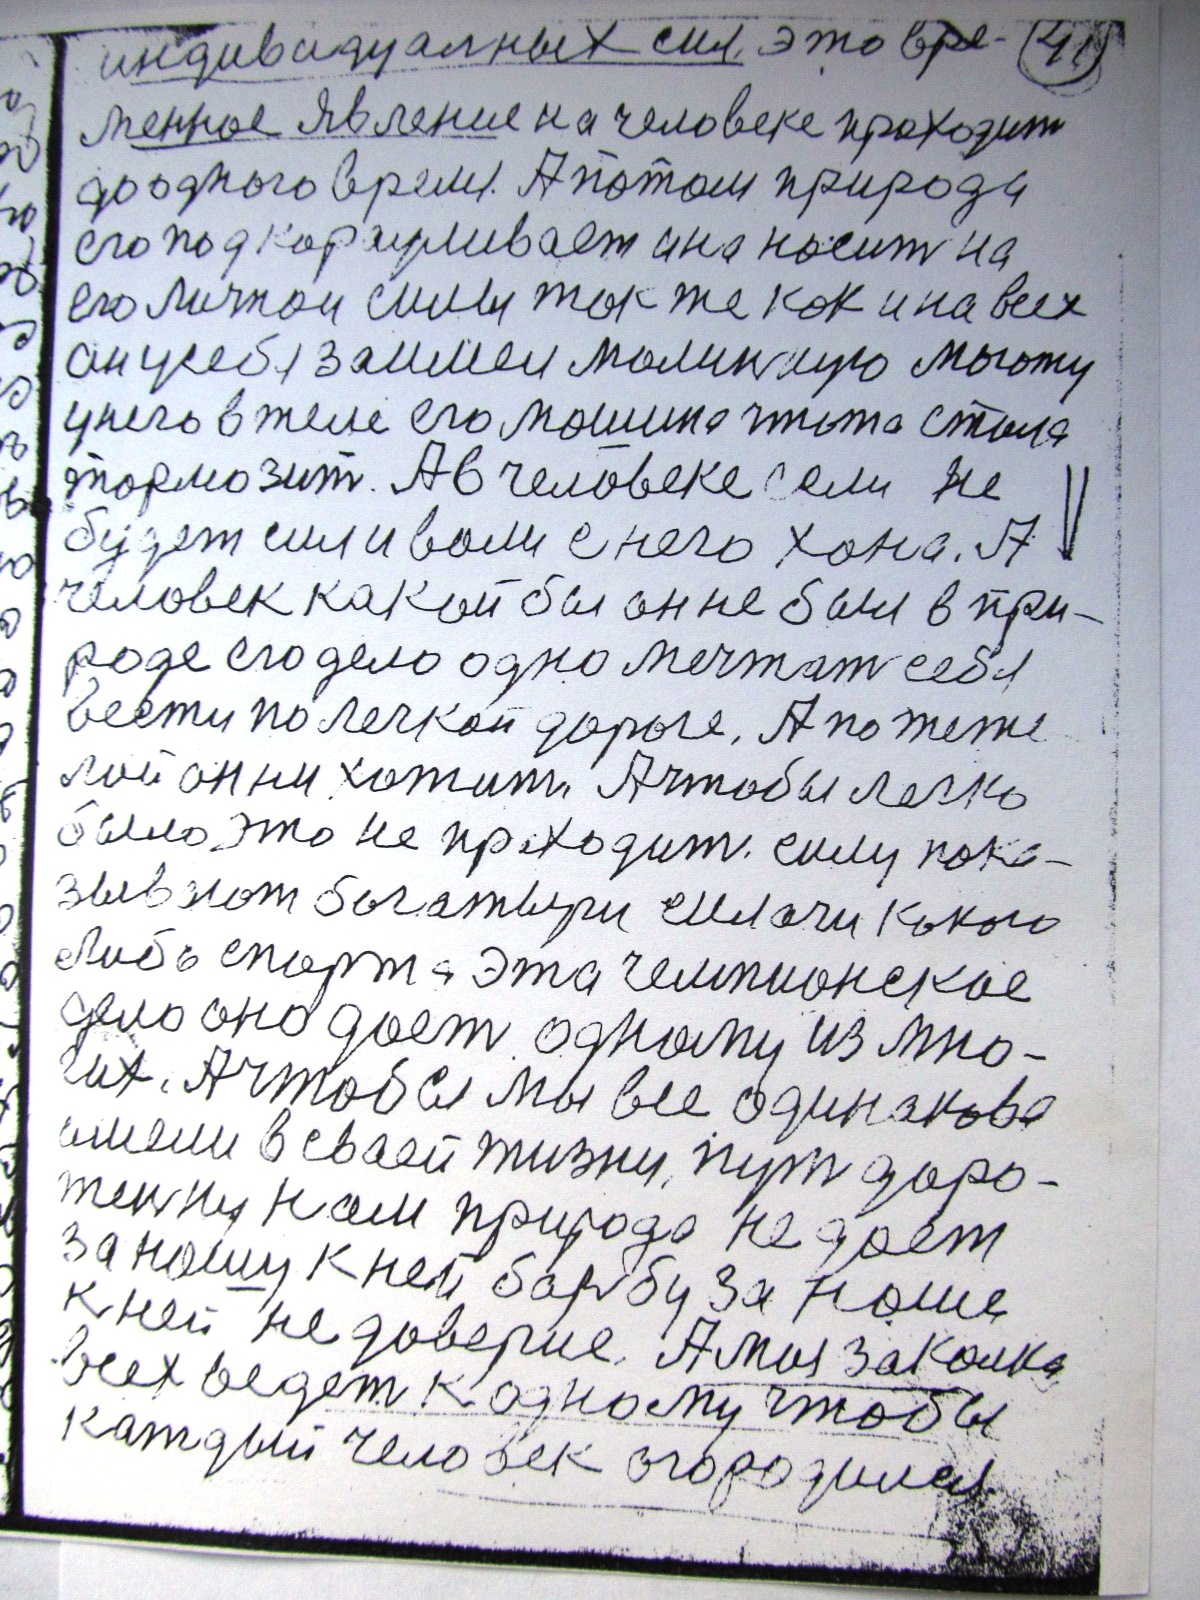 индивидуалных сил. это вре- 41
менное явление на человеке проходит
до одного время. А потом природа
его подкарауливает и на носит на
его личной силы так же как и на всех
он у себя заимел малинкую моготу
у него в теле его машина чтото стала
тормозит. А в человеке если не
будет сил и воли с него хана. А
человек какой бы он не был в при-
роде его дело одно мечтат себя
вести по легкой дороге. А по теже
лой он ни хотит. А чтобы легко
было это не проходит. силу пока-
зывают богатыри силачи какого
либо спорта эта чемпионское
дело оно дает одному из мно-
гих. А чтобы мы все одинакова
имели в своей жизни, пут доро-
женну нам природа не дает
за нашу к ней барбу за наше
к ней не доверие. А мыя закалка
всех ведет к одному чтобы
каждый человек огородился